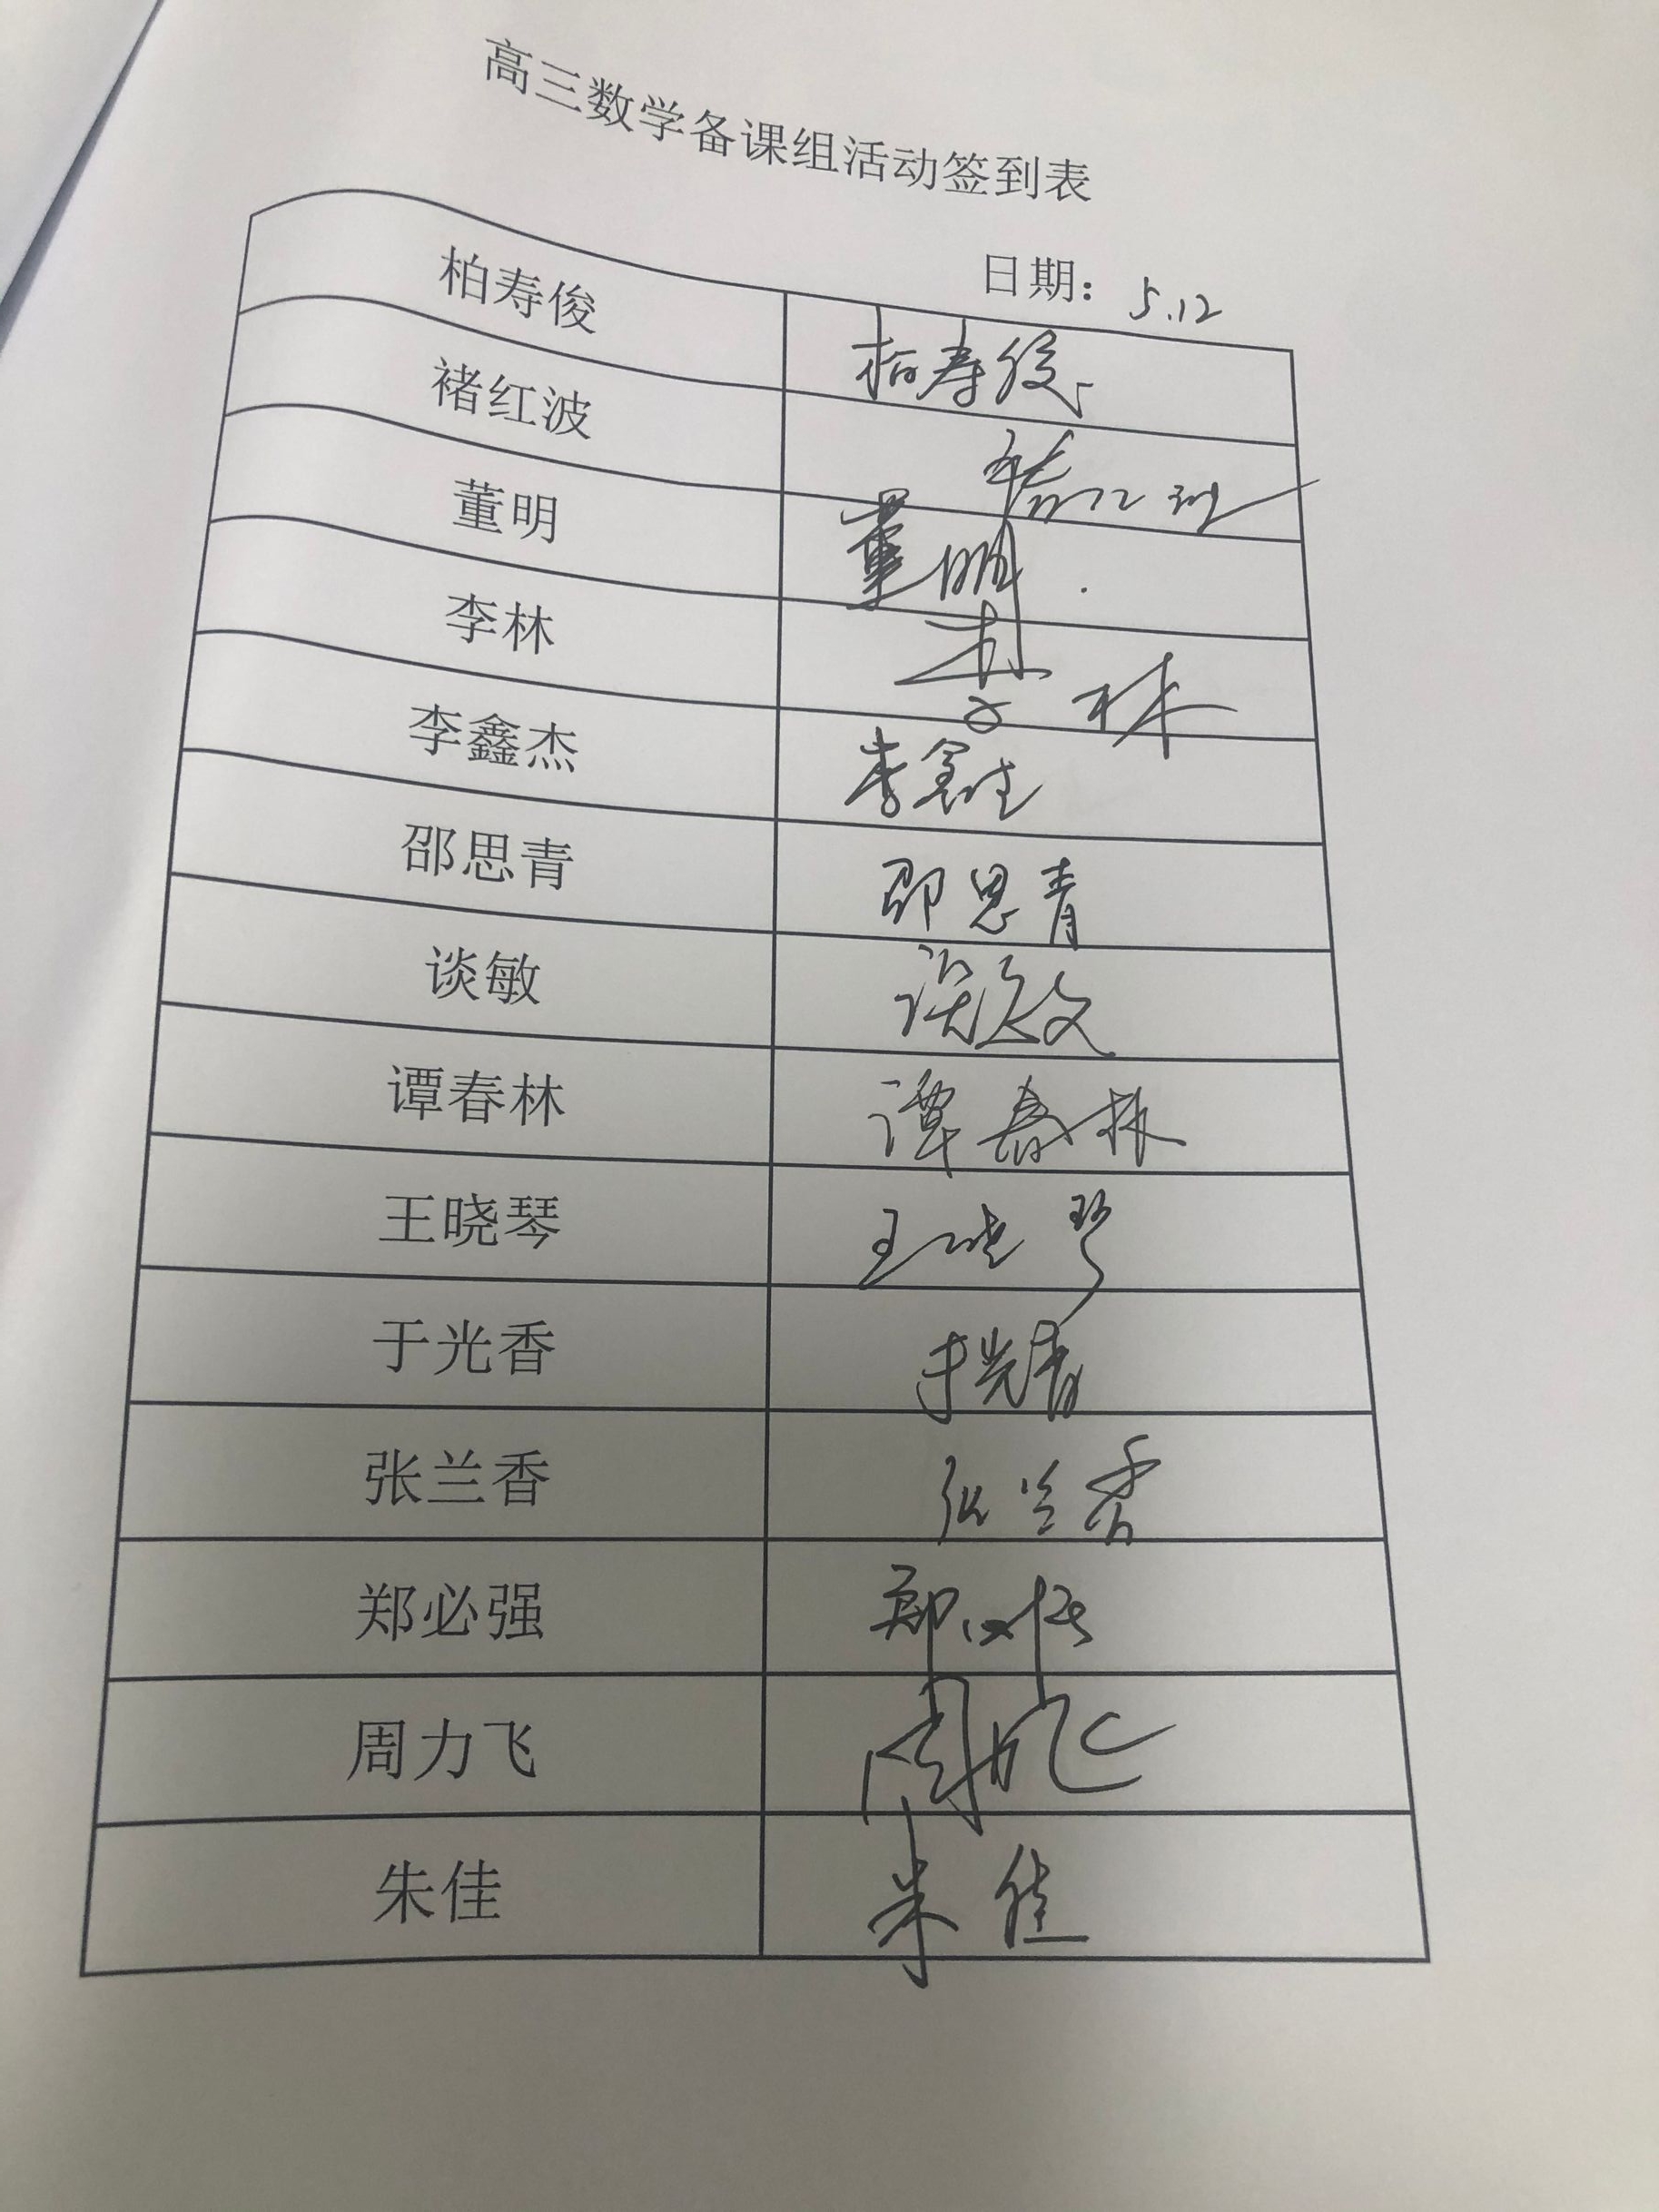 高三数学备课组活动签到表
日期：5.12
柏寿俊 柏寿俊
褚红波 褚红波
董明 董明
李林 李林
李鑫杰 李鑫杰
邵思青 邵思青
谈敏 谈敏
谭春林 谭春林
王晓琴 王晓琴
于光香 于光香
张兰香 张兰香
郑必强 郑必强
周力飞 周力飞
朱佳 朱佳